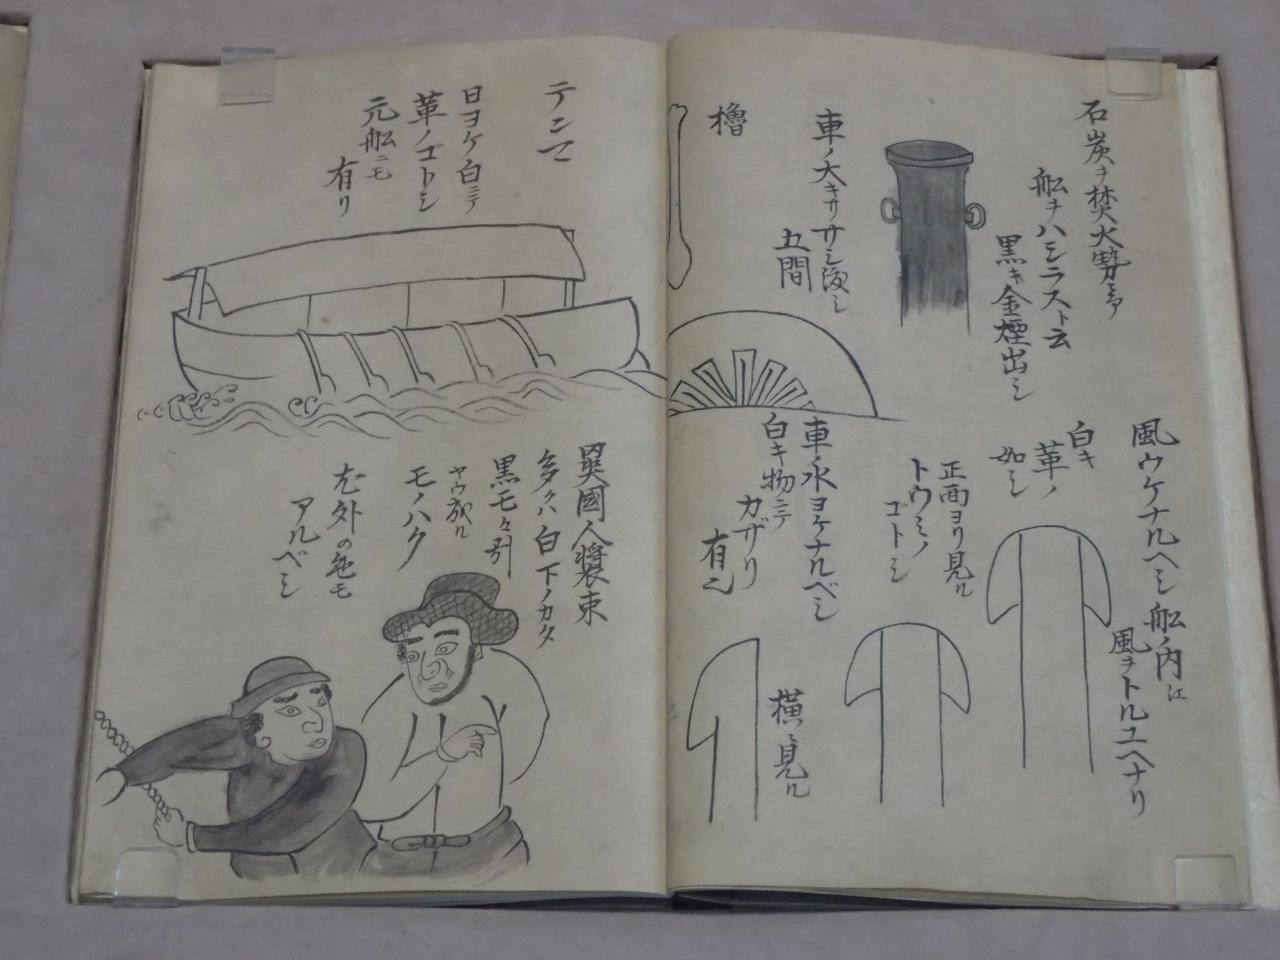 石炭ヲ焚火勢ニテ
船ヲハシラスト云
黒キ金煙出シ
車ノ大キササシ渡シ
五間
櫓
風ウケナルヘシ船ノ内江
風ヲトルユヘナリ
白キ
革ノ
如シ
正面ヨリ見ル
トウミノ
ゴトシ
車ノ水ヨケナルベシ
白キ物ニテ
カザリ
有之
横ニ見ル
テンマ
日ヨケ白ニテ
革ノゴトシ
元船ニモ
有リ
異國人裝束
多クハ白下ノカタ
黒モヽ引
ヤウ成ル
モノハク
尤外の色モ
アルベシ